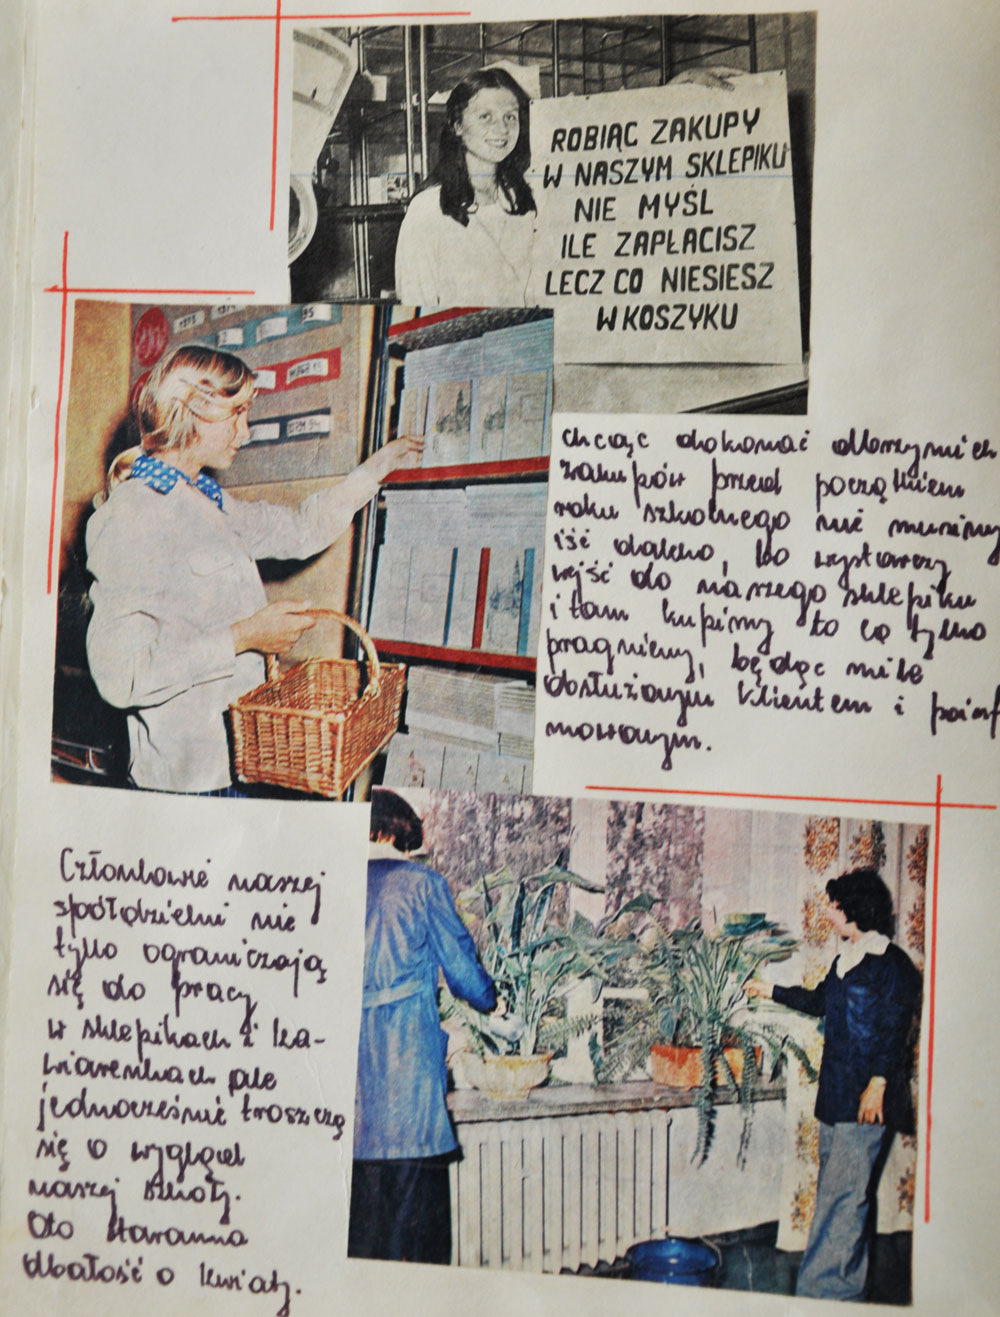 ROBIĄC ZAKUPY
W NASZYM SKLEPIKU
NIE MYŚL
ILE ZAPŁACISZ
LECZ CO NIESIESZ
W KOSZYKU
chcąc dokonać olbrzymich
zakupów przed początkiem
roku szkolnego nie musimy
iść daleko, bo wystarczy
wejść do naszego sklepiku
i tam kupimy to co tylko
pragniemy, będąc mile
obsłużonym klientem i poinf
mowanym.
Członkowie naszej
spółdzielni nie
tylko ograniczają
się do pracy
w sklepikach i ka-
wiarenkach ale
jednocześnie troszczą
się o wygląd
naszej szkoły.
do staranna
dbałość o kwiaty.